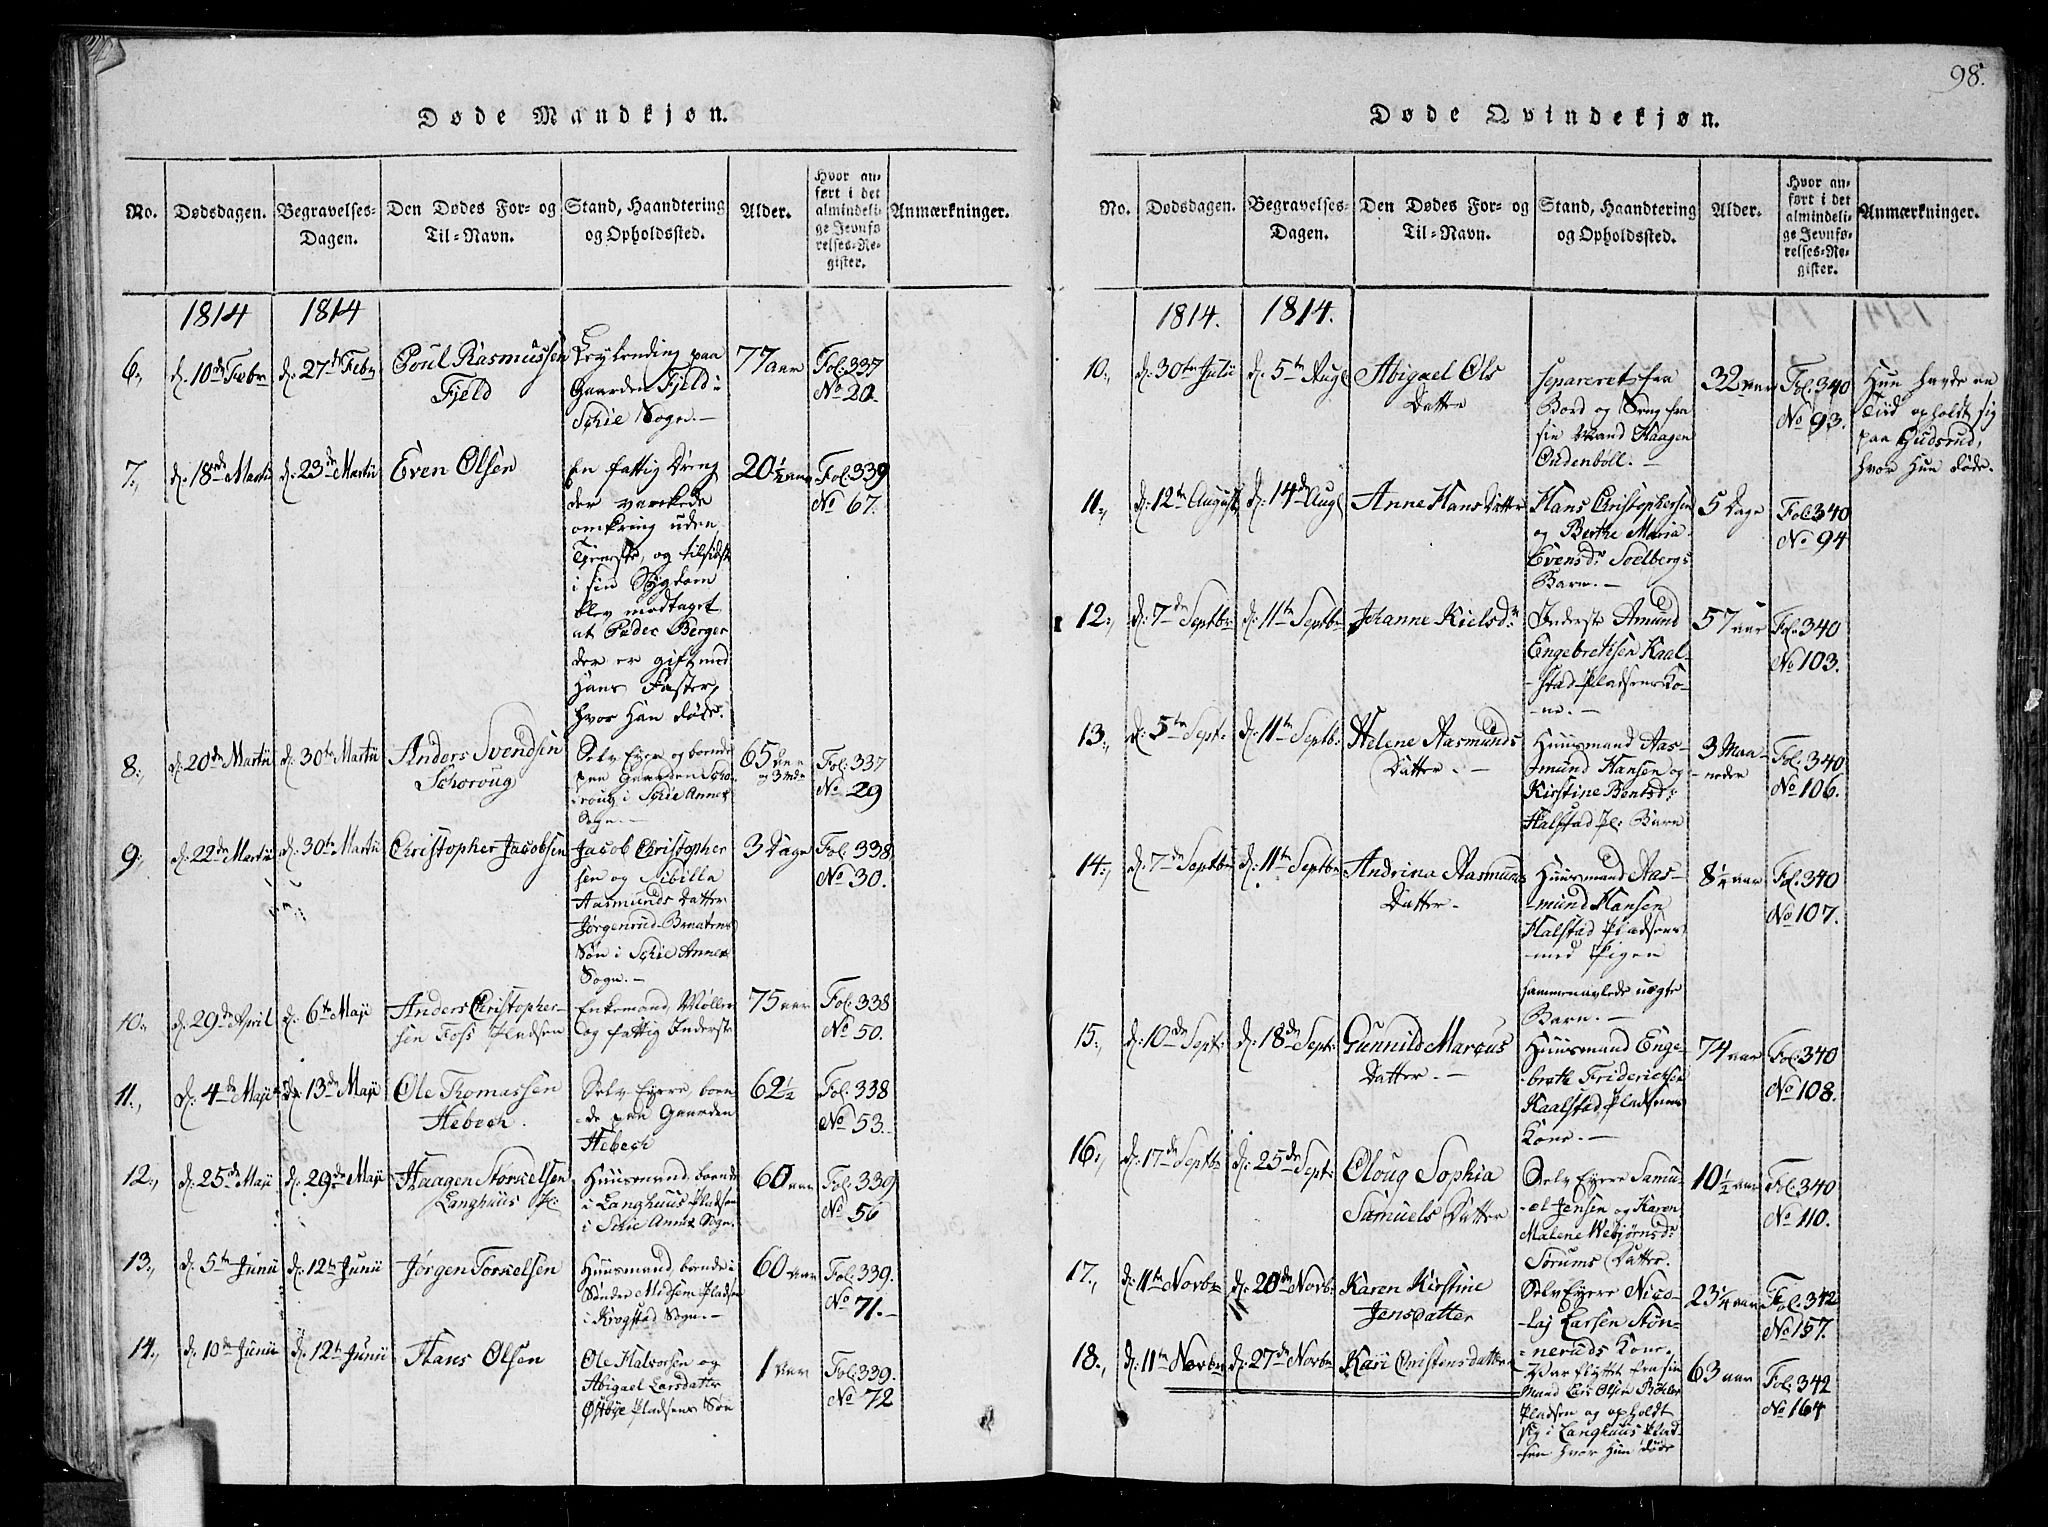 98.
Døde Mandkjøn.
No.
Dødsdagen.
Begravelses-
Dagen.
Den Dødes For- og
Til-Navn.
Stand, Haandtering
og Opholdssted.
Alder.
Hvor an-
ført i det
almindeli-
ge Jevnfø-
relses-Re-
gister.
Anmærkninger.
1814 1814
6., d. 10de Febr d. 27de Febr Poul Rasmussen
Fjeld
Leylending paa
Gaarden Fjeld i
Schie Sogn.—
77 aar
Fol: 337
No 20.
7., d. 18de Martii d. 23de Martii Even Olsen
En fattig Dreng
der vankede
omkring uden
Tjeneste, og tilsidst
i sin Sygdom
blev modtaget
af Peder Berger
der er gift med
Hans Faster,
hvor Han døde.
20½ aar
Fol: 339
No 67.
8., d. 20de Martii d. 30te Martii Anders Svendsen
Schoroug
Selv Eyer og boende
paa Gaarden Scho-
roug i Schie Annex
Sogn.—
65 aar
og 3 Mdr
Fol: 337
No 29
9., d. 22de Martii d. 30te Martii Christopher Jacobsen
Jacob Christopher
sen og Sibilla
Aasmunds Datter
Jørgenrud-Braatens
Søn i Schie Annex
Sogn.—
3 Dage
Fol: 338
No 30.
10., d. 29de April d. 6te Maji Anders Christopher-
sen Foss Pladsen
Enkemand, Møller
og fattig Inderste
75 aar
Fol: 338
No 50.
11., d. 4de Maji d. 13de Maji Ole Thomassen
Hebech.
Selv Eyere, boen-
de paa Gaarden
Hebech
62½
Fol: 338
No 53.
12., d. 25de Maji d. 29de Maji Haagen Torkelsen
Langhuus Pl:
Huusmand, boende
i Langhuus Pladsen
i Schie Annex Sogn.
60 aar
Fol: 339
No 56
13., d. 5te Junii d. 12te Junii Jørgen Torkelsen
Huusmand, boende i
Søndre Midsem Pladsen
i Krogstad Sogn.—
60 aar
Fol: 339.
No 71.
14., d. 10de Junii d. 12te Junii Hans Olsen
Ole Halvorsen og
Abigael Larsdatter
Østbye Pladsens Søn
1 aar
Fol: 339.
No 72
Døde Qvindekjøn.
No.
Dødsdagen.
Begravelses-
Dagen.
Den Dødes For- og
Til-Navn.
Stand, Haandtering
og Opholdssted.
Alder.
Hvor an-
ført i det
almindeli-
ge Jevnfø-
relses-Re-
gister.
Anmærkninger.
1814. 1814.
10., d. 30te Julii d. 5te Aug: Abigael Ols
Datter
separeret fra
Bord og Seng fra
sin Mand Haagen
Oudenboll.—
32 aar
Fol: 340
No 93.
Hun havde en
Tiid opholdt sig
paa Gudsrud,
hvor Hun døde.
11., d. 12te August, d. 14de Aug: Anne Hans Datter
Hans Christophersen
og Berthe Maria
Evensdr Soelbergs
Barn.—
5 Dage
Fol: 340
No 94
12., d. 7de Septbr d. 11te Septbr Johanne Kielsdr:
Inderste Amund
Engebretsen Kaal-
stad Pladsens Ko-
ne.—
57 aar
Fol: 340
No 103.
13., d. 5te Sept: d. 11te Septb: Helene Aasmunds
Datter.—
Huusmand Aas-
mund Hansen og
Kirstine Bentsd:
Halstad Pl: Barn
3 Maa-
neder
Fol: 340
No 106.
14., d. 7de Septbr d. 11te Septbr Andrina Aasmunds
Datter.
Huusmand Aas-
mund Hansen
Halstad Pladsens
med Pigen
sammenavlede uægte
Barn.—
8¼ aar
Fol: 340
No 107.
15., d. 10de Sept: d. 18de Sept: Gunnild Marcus
Datter.—
Huusmand Enge-
breth Friderichsen
Kaalstad Pladsens
Kone.—
74 aar
Fol: 340
No 108.
16., d. 17de Septb: d. 25de Sept: Oloug Sophia
Samuels Datter
Selv Eyere Samu-
el Jensen og Karen
Malene Webjørnsd:
Sørums Datter.
10½ aar
Fol: 340
No 110.
17., d. 11te Novbr d. 20de Novb: Karen Kirstine
Jensdatter
Selv Eyere Nico-
laj Larsen Støn-
neruds Kone.
23¼ aar
Fol: 342
No 157.
18., d. 11te Novbr d. 27de Novbr Kari Christensdatter
Var flyttet fra sin
Mand Lars Olsen Bøhler
Pladsen og opholdt
sig i Langhuus Plad-
sen hvor Hun døde
63 aar
Fol: 342
No 164